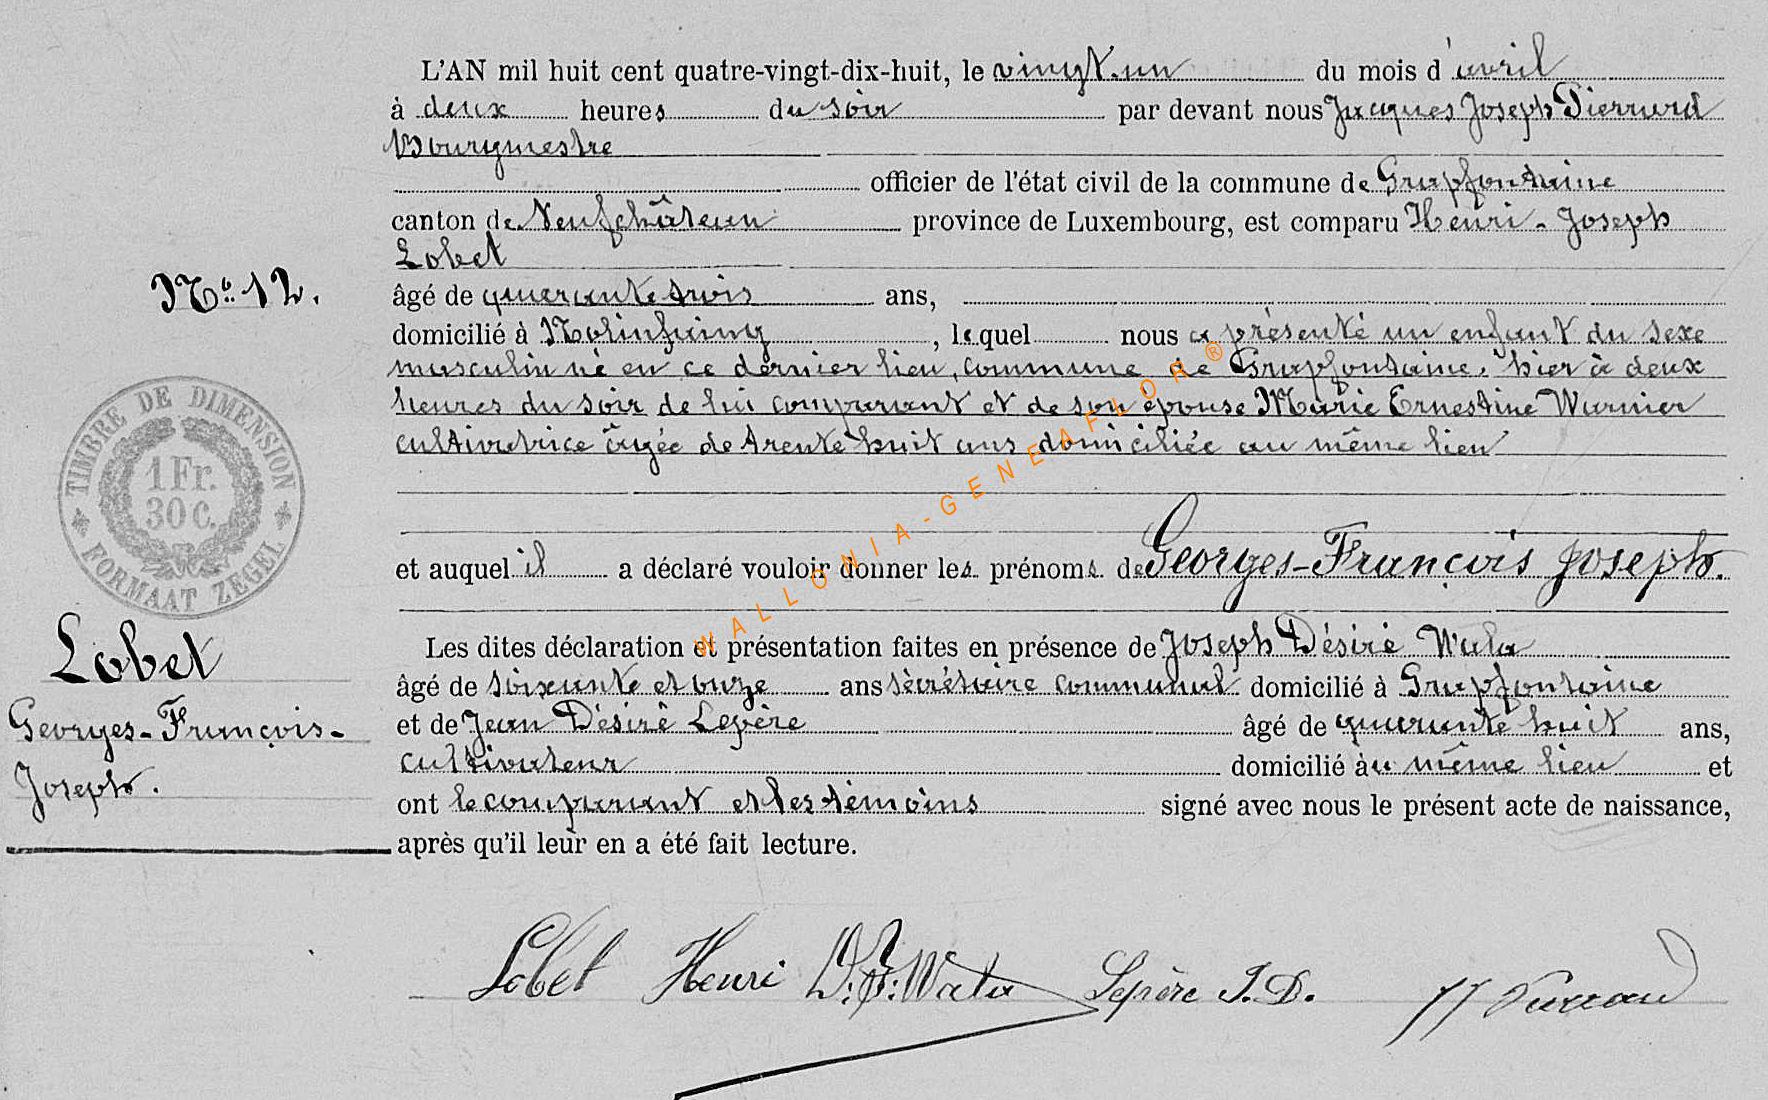 L'AN mil huit cent quatre-vingt-dix-huit, le vingt-un du mois d'avril
à deux heures du soir par devant nous Jacques Joseph Pierrard
Bourgmestre
officier de l'état civil de la commune de Grapfontaine
canton de Neufchâteau province de Luxembourg, est comparu Henri-Joseph
Lobet
N° 12.
âgé de quarante trois ans,
domicilié à Molinfaing, lequel nous a présenté un enfant du sexe
masculin né en ce dernier lieu, commune de Grapfontaine, hier à deux
heures du soir de lui comparant et de son épouse Marie Ernestine Warnier
cultivatrice âgée de trente huit ans domiciliée au même lieu
TIMBRE DE DIMENSION
1 Fr.
30 C.
FORMAAT ZEGEL
et auquel il a déclaré vouloir donner les prénoms de Georges-François Joseph.
WALLONIA-GENEAFLOR®
Lobet
Georges-François-
Joseph.
Les dites déclaration et présentation faites en présence de Joseph Désiré Wala
âgé de soixante et onze ans sécrétaire communal domicilié à Grapfontaine
et de Jean Désiré Lepère âgé de quarante huit ans,
cultivateur domicilié au même lieu et
ont le comparant et les témoins signé avec nous le présent acte de naissance,
après qu'il leur en a été fait lecture.
Lobet Henri D. J. Wala Lepère J. D. JJ Pierrard